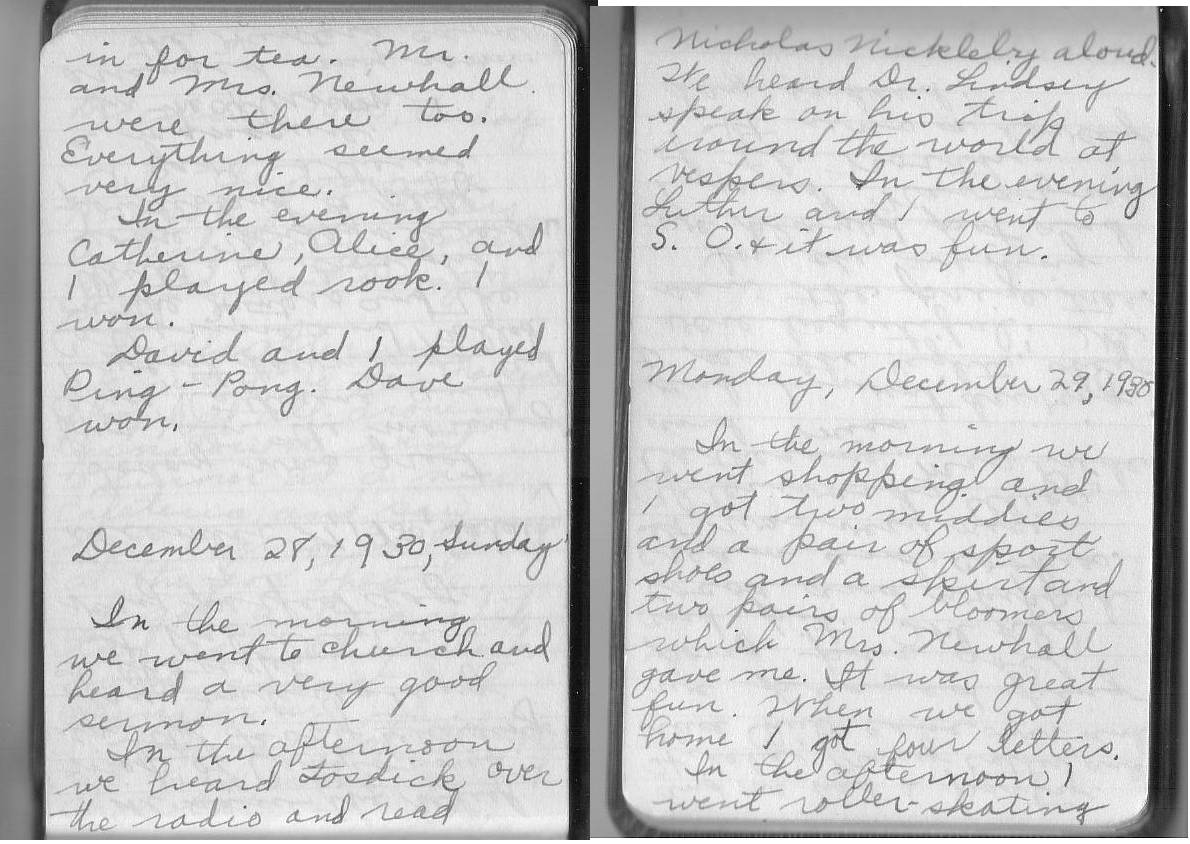 in for tea. Mr.
and Mrs. Newhall
were there too.
Everything seemed
very nice.
In the evening
Catherine, Alice, and
I played rook. I
won.
David and I played
Ping-Pong. Dave
won.
December 28, 1930, Sunday
In the morning
we went to church and
heard a very good
sermon.
In the afternoon
we heard Fosdick over
the radio and read
Nicholas Nickleby aloud.
We heard Dr. Lindsey
speak on his trip
around the world at
vespers. In the evening
Luther and I went to
S. O. & it was fun.
Monday, December 29, 1930
In the morning we
went shopping and
I got two middies
and a pair of sport
shoes and a skirt and
two pairs of bloomers
which Mrs. Newhall
gave me. It was great
fun. When we got
home I got four letters.
In the afternoon I
went roller-skating